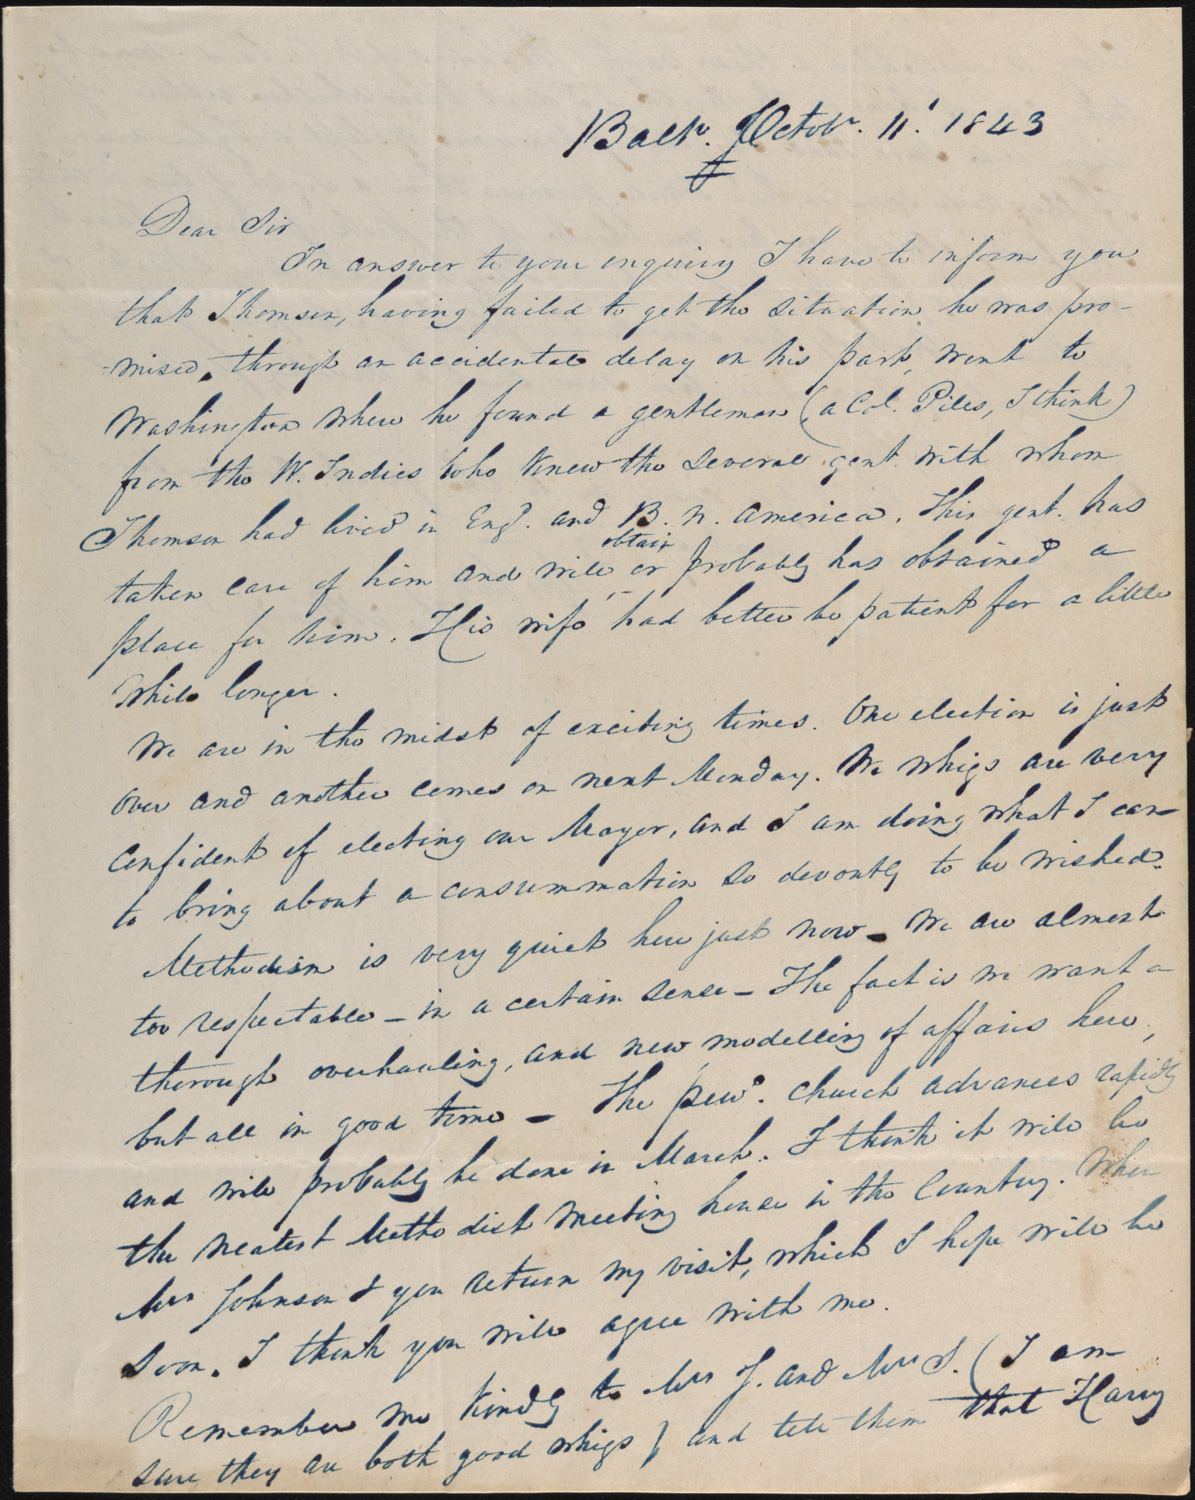 Balto. Octobr. 11' 1843
Dear Sir
In answer to your enquiry I have to inform you
that Thomson, having failed to get the situation he was pro-
-mised, through an accidental delay on his part, went to
Washington where he found a gentleman (a Col. Piles, I think)
from the W. Indies who knew the several gent. with whom
Thomson had lived in Engd. and B. N. America. This gent. has
obtain
taken care of him and will or probably has obtained a
place for him. His wife had better be patient for a little
while longer.
We are in the midst of exciting times. One election is just
over and another comes on next Monday. We whigs are very
confident of electing our Mayor, and I am doing what I can
to bring about a consummation so devoutly to be wished.
Methodism is very quiet here just now - We are almost
too respectable - in a certain sense - The fact is we want a
thorough overhauling, and new modelling of affairs here,
but all in good time - The pewd. church advances rapidly
and will probably be done in March. I think it will be
the neatest Methodist meeting house in the Country. When
Mrs Johnson & you return my visit, which I hope will be
soon, I think you will agree with me.
Remember me kindly to Mrs J. and Mrs S. (I am
sure they are both good whigs) and tell them that Harry